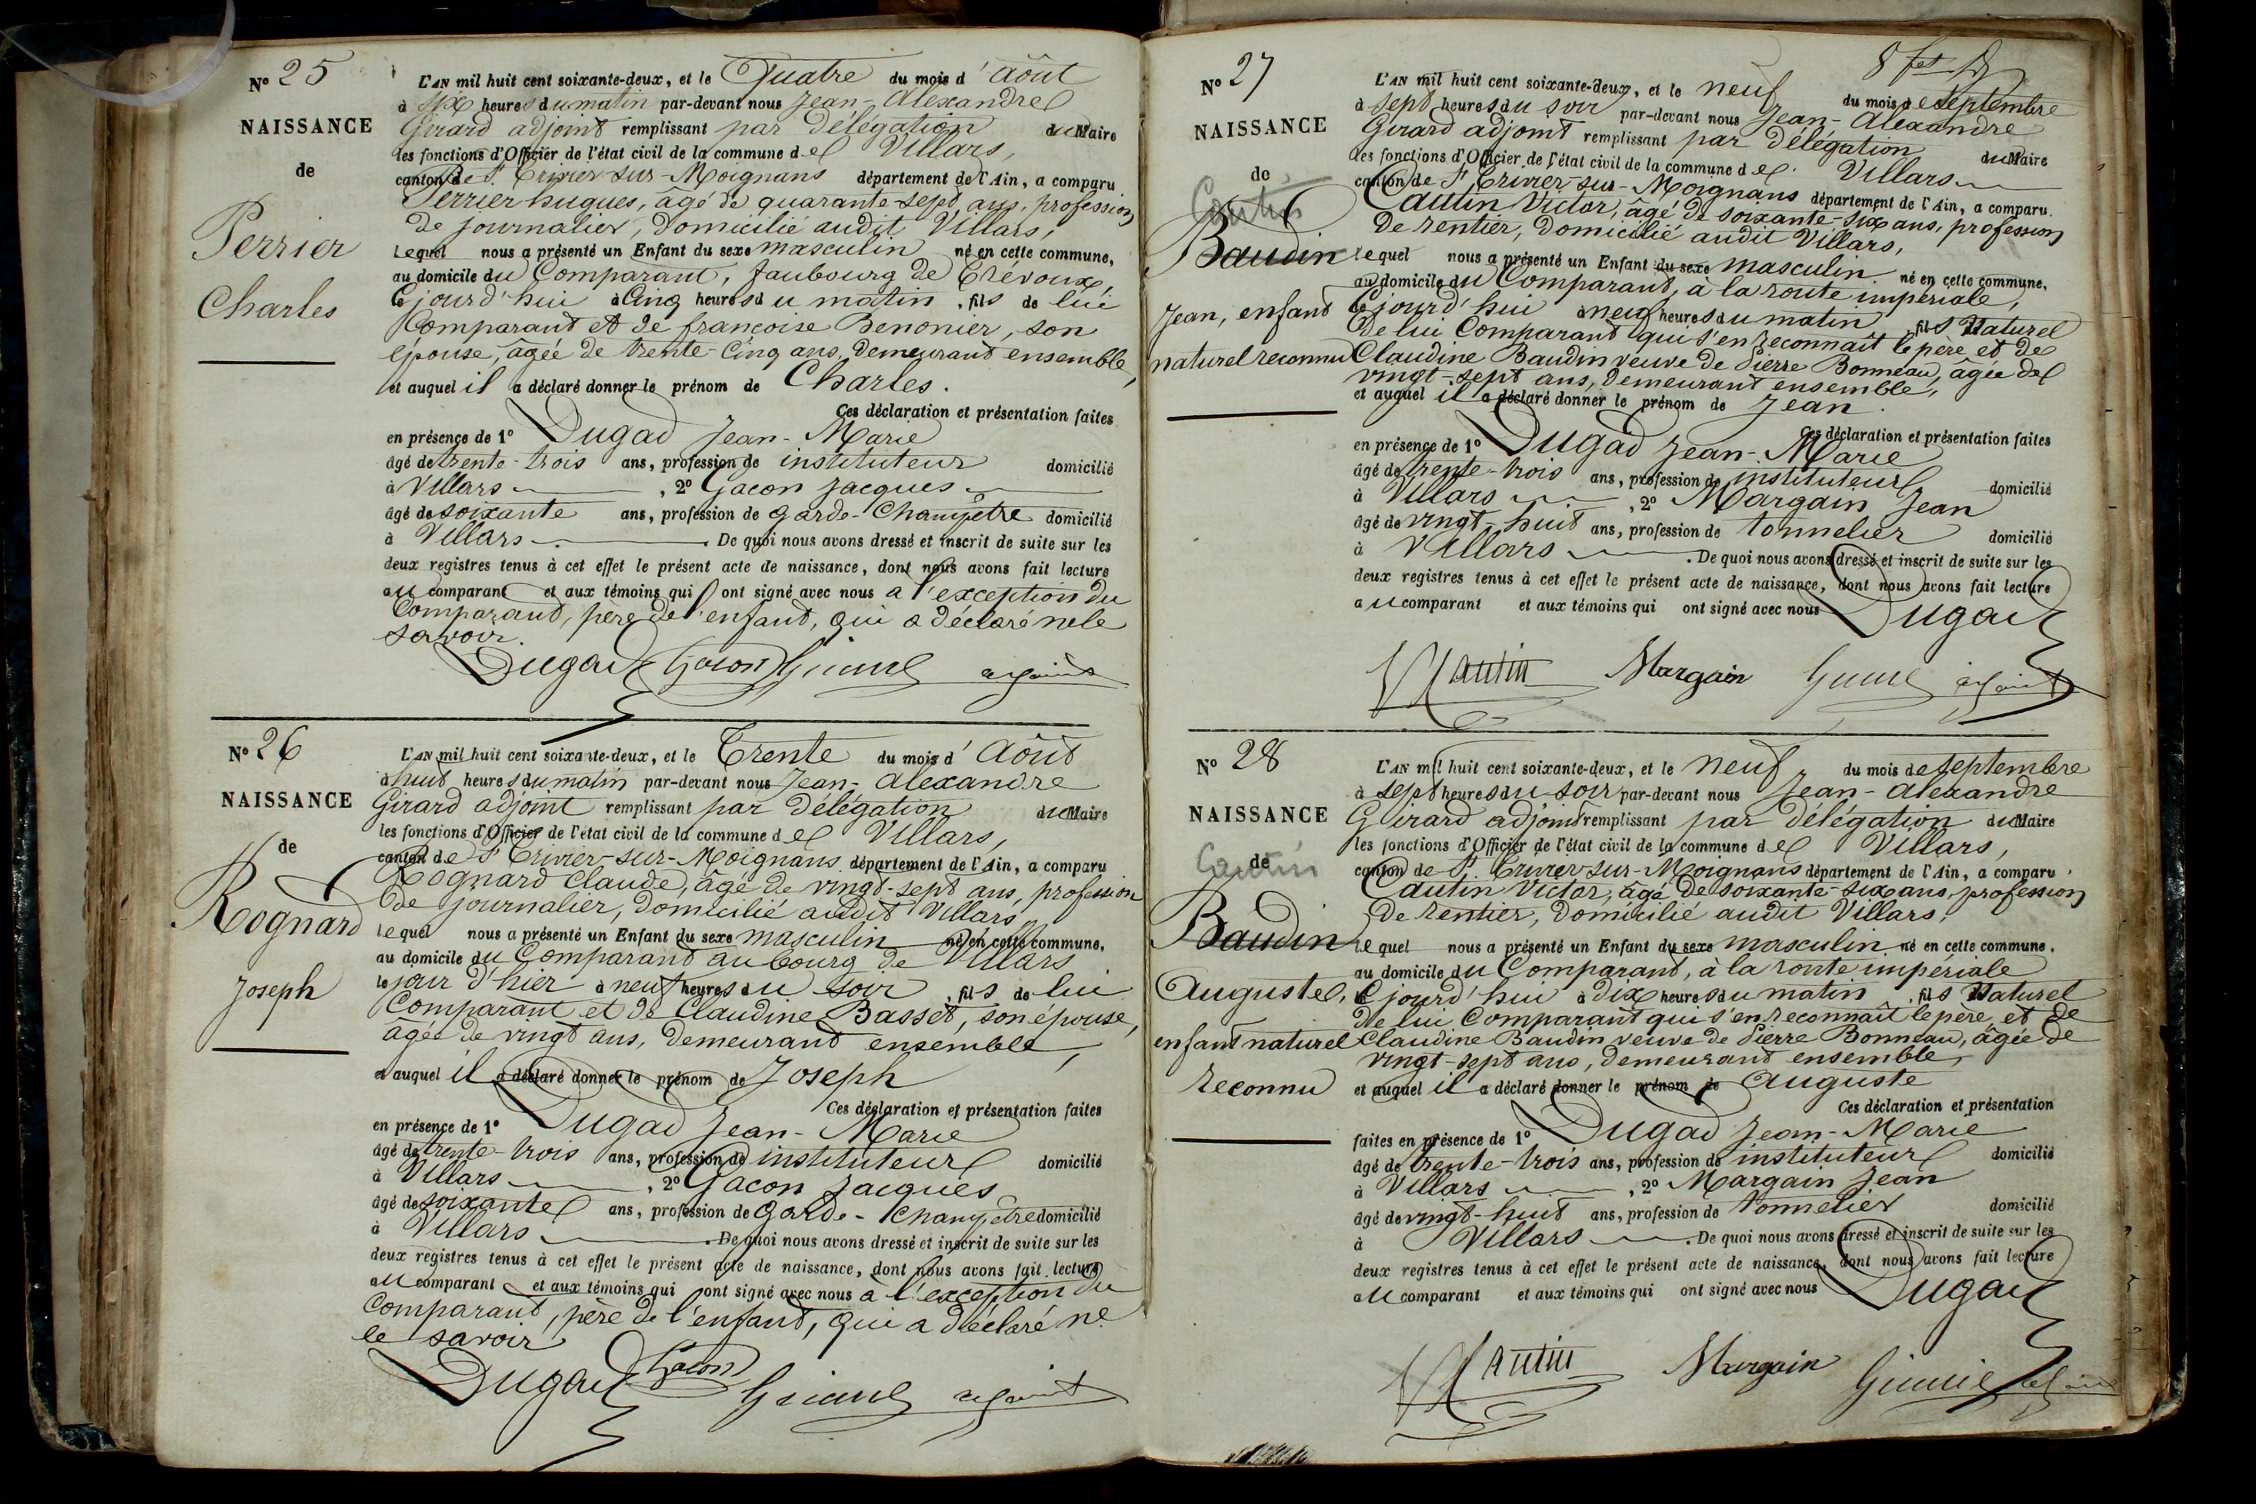 N° 25
NAISSANCE
de
Perrier
Charles
L'AN mil huit cent soixante-deux, et le Quatre du mois d'Août
à six heures du matin par-devant nous Jean-Alexandre
Girard adjoint remplissant par délégation du Maire
les fonctions d'Officier de l'état civil de la commune de Villars,
canton de St Trivier-sur-Moignans département de l'Ain, a comparu
Perrier hugues, âgé de quarante-sept ans, profession
de journalier, domicilié audit Villars,
Lequel nous a présenté un Enfant du sexe masculin né en cette commune,
au domicile du Comparant, faubourg de Trévoux,
Cejourd'hui à Cinq heures du matin, fils de lui
Comparant et de françoise Benonier, son
épouse, âgée de trente-Cinq ans, demeurant ensemble,
et auquel il a déclaré donner le prénom de Charles.
Ces déclaration et présentation faites
en présence de 1° Dugad Jean-Marie
âgé de trente-trois ans, profession de instituteur domicilié
à Villars, 2° Gacon Jacques
âgé de soixante ans, profession de garde-Champêtre domicilié
à Villars. De quoi nous avons dressé et inscrit de suite sur les
deux registres tenus à cet effet le présent acte de naissance, dont nous avons fait lecture
au comparant et aux témoins qui ont signé avec nous à l'exception du
Comparant, père de l'enfant, qui a déclaré ne le
savoir.
Dugad Gacon Girard adjoint
N° 26
NAISSANCE
de
Rognard
Joseph
L'AN mil huit cent soixante-deux, et le Trente du mois d'Août
à huit heures du matin par-devant nous Jean-Alexandre
Girard adjoint remplissant par délégation du Maire
les fonctions d'Officier de l'état civil de la commune de Villars,
canton de St Trivier-sur-Moignans département de l'Ain, a comparu
Rognard Claude, âgé de vingt-sept ans, profession
de journalier, domicilié audit Villars,
lequel nous a présenté un Enfant du sexe masculin né en cette commune,
au domicile du Comparant au bourg de Villars
le jour d'hier à neuf heures du soir, fils de lui
Comparant et de Claudine Basset, son épouse,
âgée de vingt ans, demeurant ensemble,
et auquel il a déclaré donner le prénom de Joseph
Ces déclaration et présentation faites
en présence de 1° Dugad Jean-Marie
âgé de trente-trois ans, profession de instituteur domicilié
à Villars, 2° Gacon Jacques
âgé de soixante ans, profession de Garde-Champêtre domicilié
à Villars. De quoi nous avons dressé et inscrit de suite sur les
deux registres tenus à cet effet le présent acte de naissance, dont nous avons fait lecture
au comparant et aux témoins qui ont signé avec nous à l'exception du
Comparant, père de l'enfant, qui a déclaré ne
le savoir
Dugad Gacon Girard adjoint
N° 27
NAISSANCE
de
Cautin
Baudin
Jean, enfant
naturel reconnu
L'AN mil huit cent soixante-deux, et le neuf du mois de Septembre
à sept heures du soir par-devant nous Jean-Alexandre
Girard adjoint remplissant par délégation du Maire
les fonctions d'Officier de l'état civil de la commune de Villars
canton de St Trivier-sur-Moignans département de l'Ain, a comparu
Cautin Victor, âgé de soixante-six ans, profession
de rentier, domicilié audit Villars,
lequel nous a présenté un Enfant du sexe masculin né en cette commune,
au domicile du Comparant, à la route impériale,
Cejourd'hui à neuf heures du matin, fils Naturel
de lui Comparant qui s'en reconnaît le père et de
Claudine Baudin veuve de Pierre Bonneau, âgée de
vingt-sept ans, demeurant ensemble,
et auquel il a déclaré donner le prénom de Jean.
Ces déclaration et présentation faites
en présence de 1° Dugad Jean-Marie
âgé de trente-trois ans, profession de instituteur domicilié
à Villars, 2° Margain Jean
âgé de vingt-huit ans, profession de tonnelier domicilié
à Villars. De quoi nous avons dressé et inscrit de suite sur les
deux registres tenus à cet effet le présent acte de naissance, dont nous avons fait lecture
au comparant et aux témoins qui ont signé avec nous Dugad
Cautin Margain Girard adjoint
N° 28
NAISSANCE
de
Cautin
Baudin
Auguste,
enfant naturel
reconnu
L'AN mil huit cent soixante-deux, et le neuf du mois de Septembre
à sept heures du soir par-devant nous Jean-Alexandre
Girard adjoint remplissant par délégation du Maire
les fonctions d'Officier de l'état civil de la commune de Villars,
canton de St Trivier-sur-Moignans département de l'Ain, a comparu
Cautin Victor, âgé de soixante-six ans, profession
de rentier, domicilié audit Villars,
lequel nous a présenté un Enfant du sexe masculin né en cette commune,
au domicile du Comparant, à la route impériale
Cejourd'hui à dix heures du matin, fils Naturel
de lui Comparant qui s'en reconnaît le père et de
Claudine Baudin veuve de Pierre Bonneau, âgée de
vingt-sept ans, demeurant ensemble,
et auquel il a déclaré donner le prénom de Auguste
Ces déclaration et présentation
faites en présence de 1° Dugad Jean-Marie
âgé de trente-trois ans, profession de instituteur domicilié
à Villars, 2° Margain Jean
âgé de vingt-huit ans, profession de tonnelier domicilié
à Villars. De quoi nous avons dressé et inscrit de suite sur les
deux registres tenus à cet effet le présent acte de naissance, dont nous avons fait lecture
au comparant et aux témoins qui ont signé avec nous Dugad
Cautin Margain Girard adjoint